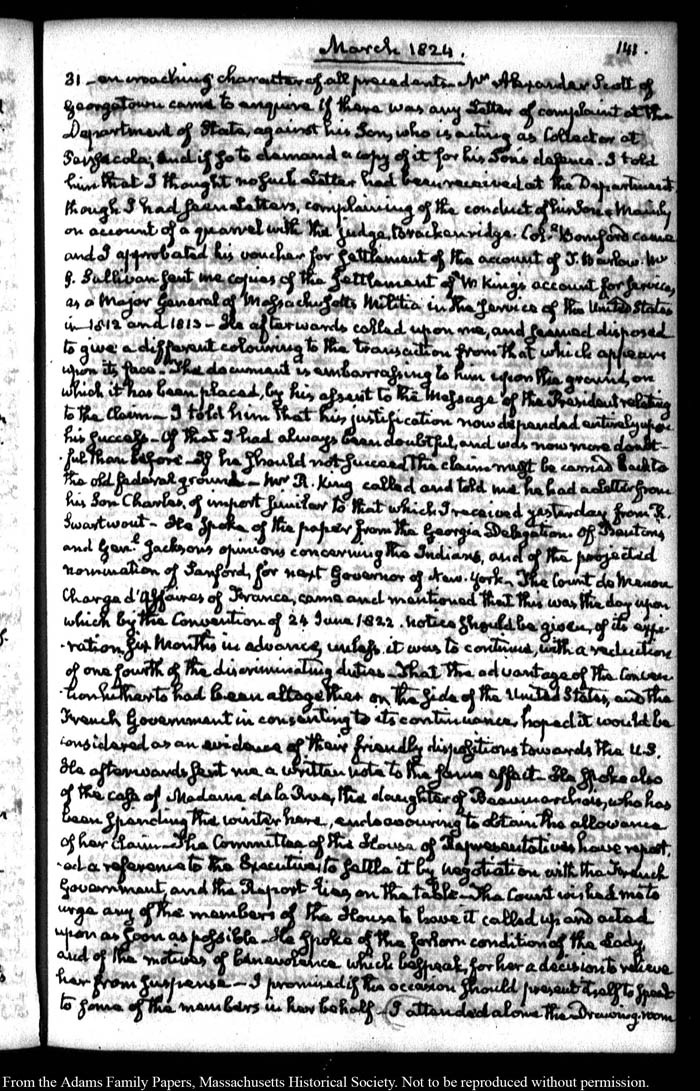 March 1824.
141.
31 - encroaching character of all precedents - Mr Alexander Scott of
Georgetown came to enquire if there was any Letter of complaint at the
Department of State, against his Son, who is acting as Collector at
Pensacola; and if so to demand a copy of it for his Son's defence. I told
him that I thought no such Letter had been received at the Department,
though I had seen Letters, complaining of the conduct of his Son; Mainly
on account of a quarrel with the Judge, Brackenridge. Coll. Bomford came
and I approbated his voucher for settlement of the account of J. Barlow. Mr
G. Sullivan sent me copies of the settlement of W. King's account for services,
as a Major General of Massachusetts Militia in the service of the United States
in 1812 and 1813 - He afterwards called upon me, and seemed disposed
to give a different colouring to the transaction from that which appears
upon its face - The document is embarrassing to him upon the ground, on
which it has been placed, by his assent to the Message of the President relating
to the Claim - I told him that his justification now depended entirely upon
his success. Of that I had always been doubtful, and was now more doubt-
-ful than before - If he should not succeed the claim must be carried back to
the old federal ground - Mr R. King called and told me he had a Letter from
his Son Charles, of import similar to that which I received yesterday from R.
Swartwout - He spoke of the paper from the Georgia Delegation. Of Benton's
and Genl. Jackson's opinions concerning the Indians, and of the projected
nomination of Sanford, for next Governor of New-York - The Count de Menou
Chargé d'Affaires of France, came and mentioned that this was the day upon
which by the Convention of 24 June 1822. notice should be given, of its expi-
-ration, six Months in advance, unless it was to continue, with a reduction
of one fourth of the discriminating duties - That the advantage of the Conven-
-tion hitherto had been altogether on the side of the United States, and the
French Government in consenting to its continuance, hoped it would be
considered as an evidence of their friendly dispositions towards the U.S.
He afterwards sent me a written note to the same effect - He spoke also
of the case of Madame de la Rue, the daughter of Beaumarchais, who has
been spending the winter here, endeavouring to obtain the allowance
of her Claim - The Committee of the House of Representatives have report-
-ed a reference to the Executive, to settle it by negotiation with the French
Government, and the Report lies on the table - The Count wished me to
urge any of the members of the House to have it called up and acted
upon as soon as possible - He spoke of the forlorn condition of the Lady,
and of the motives of benevolence which bespeak, for her a decision to relieve
her from suspense - I promised if the occasion should present itself to speak
to some of the members in her behalf - I attended alone the Drawing-room
From the Adams Family Papers, Massachusetts Historical Society. Not to be reproduced without permission.